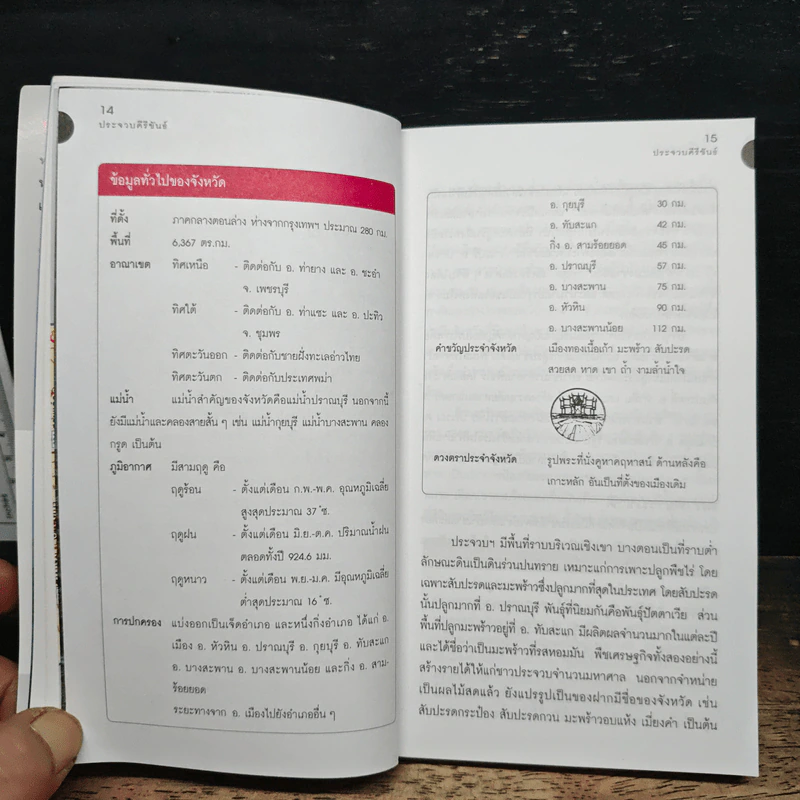 14
ประจวบคีรีขันธ์
ข้อมูลทั่วไปของจังหวัด
ที่ตั้ง ภาคกลางตอนล่าง ห่างจากกรุงเทพฯ ประมาณ 280 กม.
พื้นที่ 6,367 ตร.กม.
อาณาเขต ทิศเหนือ - ติดต่อกับ อ. ท่ายาง และ อ. ชะอำ
จ. เพชรบุรี
ทิศใต้ - ติดต่อกับ อ. ท่าแซะ และ อ. ปะทิว
จ. ชุมพร
ทิศตะวันออก - ติดต่อกับชายฝั่งทะเลอ่าวไทย
ทิศตะวันตก - ติดต่อกับประเทศพม่า
แม่น้ำ แม่น้ำสำคัญของจังหวัดคือแม่น้ำปราณบุรี นอกจากนี้
ยังมีแม่น้ำและคลองสายสั้น ๆ เช่น แม่น้ำกุยบุรี แม่น้ำบางสะพาน คลอง
กรูด เป็นต้น
ภูมิอากาศ มีสามฤดู คือ
ฤดูร้อน - ตั้งแต่เดือน ก.พ.-พ.ค. อุณหภูมิเฉลี่ย
สูงสุดประมาณ 37 ํซ.
ฤดูฝน - ตั้งแต่เดือน มิ.ย.-ต.ค. ปริมาณน้ำฝน
ตลอดทั้งปี 924.6 มม.
ฤดูหนาว - ตั้งแต่เดือน พ.ย.-ม.ค. มีอุณหภูมิเฉลี่ย
ต่ำสุดประมาณ 16 ํซ.
การปกครอง แบ่งออกเป็นเจ็ดอำเภอ และหนึ่งกิ่งอำเภอ ได้แก่ อ.
เมือง อ. หัวหิน อ. ปราณบุรี อ. กุยบุรี อ. ทับสะแก
อ. บางสะพาน อ. บางสะพานน้อย และกิ่ง อ. สาม-
ร้อยยอด
ระยะทางจาก อ. เมืองไปยังอำเภออื่น ๆ
15
ประจวบคีรีขันธ์
อ. กุยบุรี 30 กม.
อ. ทับสะแก 42 กม.
กิ่ง อ. สามร้อยยอด 45 กม.
อ. ปราณบุรี 57 กม.
อ. บางสะพาน 75 กม.
อ. หัวหิน 90 กม.
อ. บางสะพานน้อย 112 กม.
คำขวัญประจำจังหวัด เมืองทองเนื้อเก้า มะพร้าว สับปะรด
สวยสด หาด เขา ถ้ำ งามล้ำน้ำใจ
ดวงตราประจำจังหวัด รูปพระที่นั่งคูหาคฤหาสน์ ด้านหลังคือ
เกาะหลัก อันเป็นที่ตั้งของเมืองเดิม
ประจวบฯ มีพื้นที่ราบบริเวณเชิงเขา บางตอนเป็นที่ราบต่ำ
ลักษณะดินเป็นดินร่วนปนทราย เหมาะแก่การเพาะปลูกพืชไร่ โดย
เฉพาะสับปะรดและมะพร้าวซึ่งปลูกมากที่สุดในประเทศ โดยสับปะรด
นั้นปลูกมากที่ อ. ปราณบุรี พันธุ์ที่นิยมกันคือพันธุ์ปัตตาเวีย ส่วน
พื้นที่ปลูกมะพร้าวอยู่ที่ อ. ทับสะแก มีผลิตผลจำนวนมากในแต่ละปี
และได้ชื่อว่าเป็นมะพร้าวที่รสหอมมัน พืชเศรษฐกิจทั้งสองอย่างนี้
สร้างรายได้ให้แก่ชาวประจวบจำนวนมหาศาล นอกจากจำหน่าย
เป็นผลไม้สดแล้ว ยังแปรรูปเป็นของฝากมีชื่อของจังหวัด เช่น
สับปะรดกระป๋อง สับปะรดกวน มะพร้าวอบแห้ง เมี่ยงคำ เป็นต้น